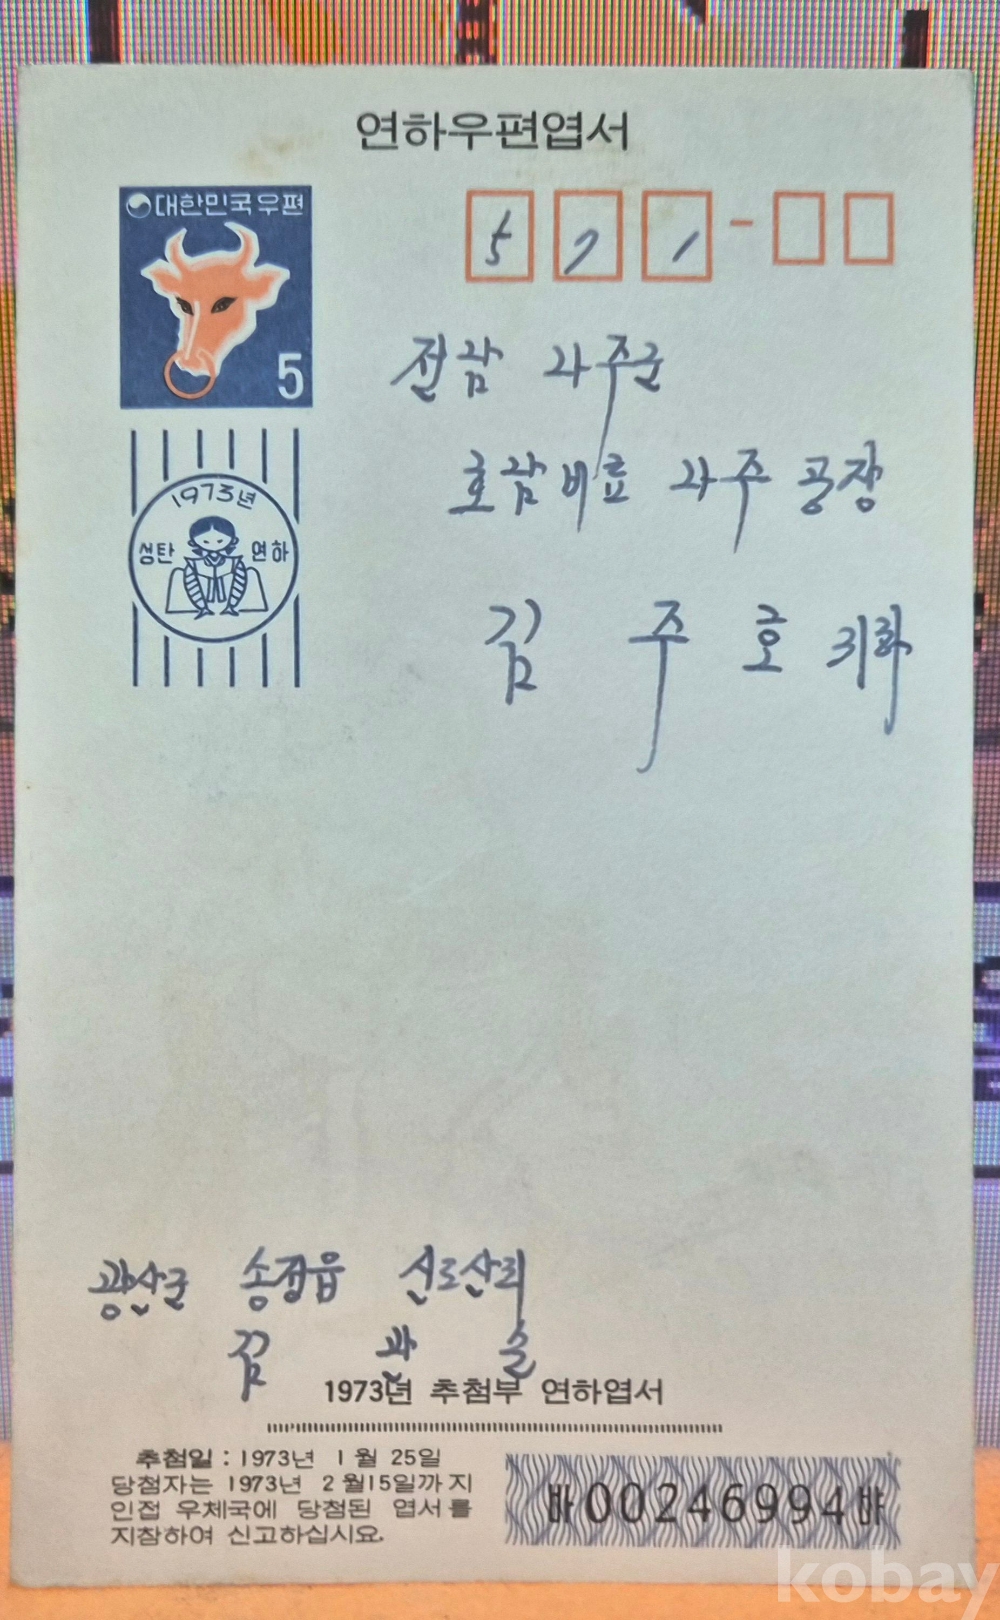 연하우편엽서
대한민국우편
5
5 7 1 -
전남 나주군
호남비료 나주 공장
김 주 호 귀하
1973년
성탄 연하
광산군 송정읍 신도산리
김 관 술
1973년 추첨부 연하엽서
추첨일 : 1973년 1월 25일
당첨자는 1973년 2월15일까지
인접 우체국에 당첨된 엽서를
지참하여 신고하십시요.
바00246994뱌
kobay